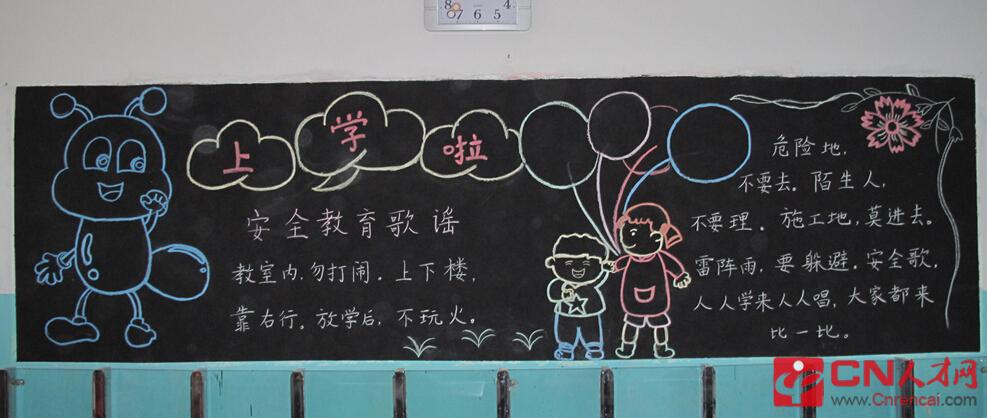 8 7 6 5 4
上学啦
安全教育歌谣
教室内,勿打闹.上下楼,
靠右行。放学后,不玩火。
危险地,
不要去。陌生人,
不要理。施工地,莫进去。
雷阵雨,要躲避。安全歌,
人人学来人人唱,大家都来
比一比。
CN人才网
www.Cnrencai.com